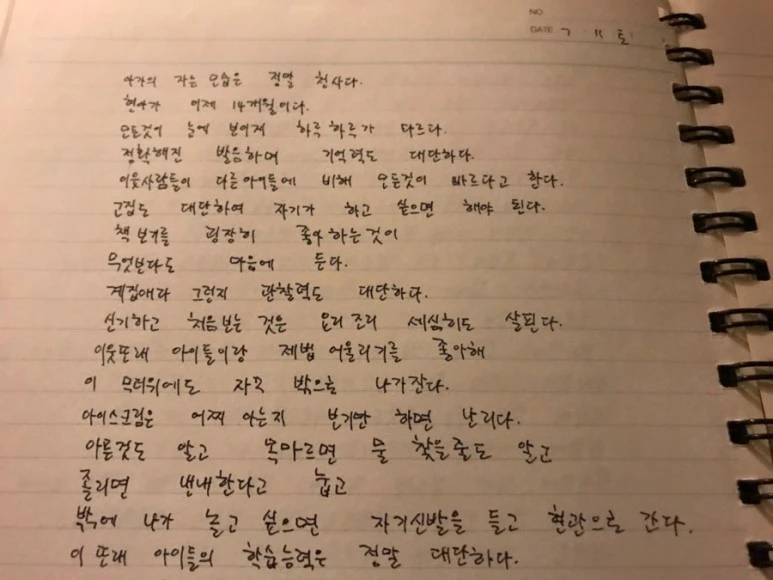 NO
DATE 7 11 토
아가의 자는 모습은 정말 천사다.
현아가 이제 14개월이다.
모든것이 눈에 보이게 하루하루가 다르다.
정확해진 발음하며 기억력도 대단하다.
이웃사람들이 다른아이들에 비해 모든것이 빠르다고 한다.
고집도 대단하여 자기가 하고 싶으면 해야 된다.
책 보기를 굉장히 좋아하는것이
무엇보다도 마음에 든다.
계집애라 그런지 관찰력도 대단하다.
신기하고 처음보는 것은 요리조리 세심히도 살핀다.
이웃또래 아이들이랑 제법 어울리기를 좋아해
이 무더위에도 자꾸 밖으로 나가잔다.
아이스크림은 어찌 아는지 보기만 하면 난리다.
아픈것도 알고 목마르면 물 찾을줄도 알고
졸리면 낸내한다고 눕고
밖에 나가 놀고 싶으면 자기신발을 들고 현관으로 간다.
이 또래 아이들의 학습능력은 정말 대단하다.